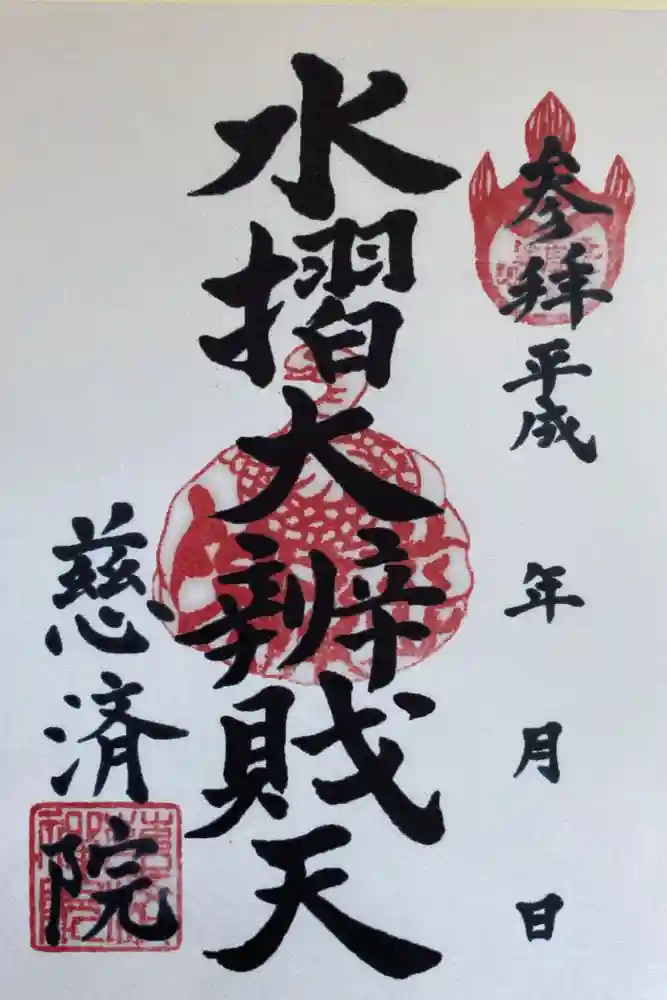 参拝平成 年 月 日
水摺大辨財天
慈済院